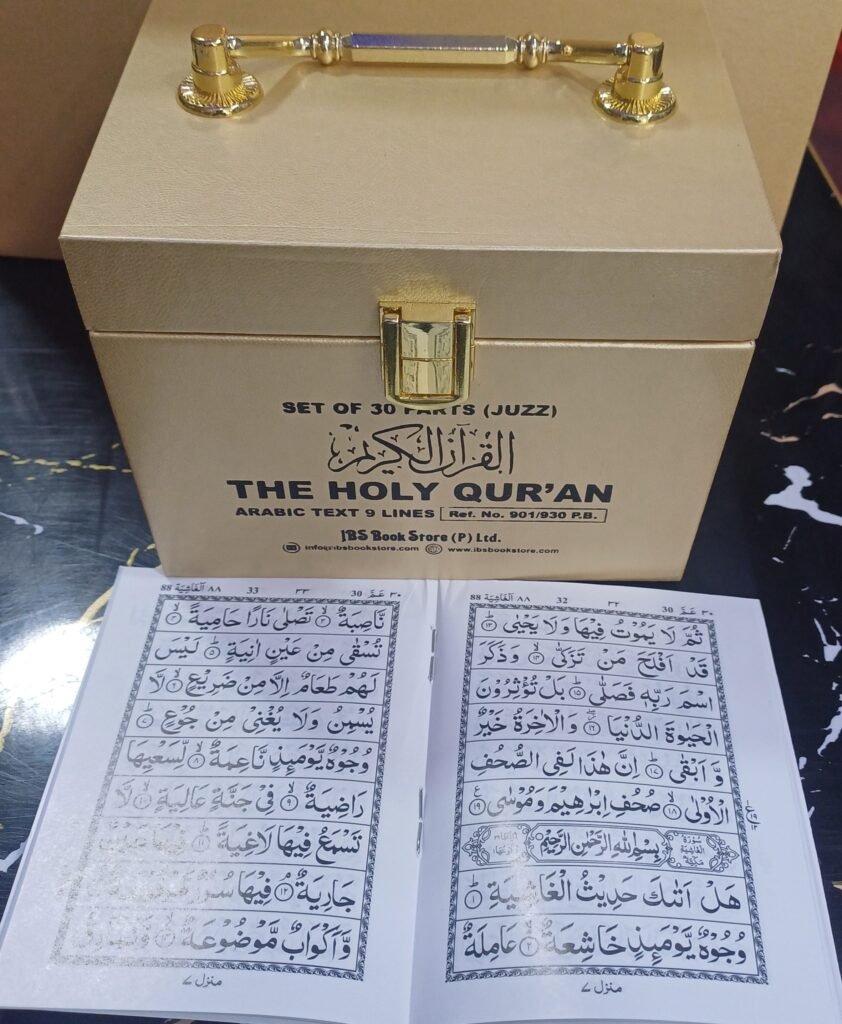 SET OF 30 PARTS (JUZZ)
القرآن الكريم
THE HOLY QUR'AN
ARABIC TEXT 9 LINES Ref. No. 901/930 P.B.
IBS Book Store (P) Ltd.
info@ibsbookstore.com www.ibsbookstore.com
٣٠ عَمَّ 30 ٣٢ 32 اَلْغَاشِيَة ٨٨ 88
ثُمَّ لَا يَمُوْتُ فِيْهَا وَلَا يَحْيٰى ؕ﴿۱۳﴾
قَدْ اَفْلَحَ مَنْ تَزَكّٰى ﴿۱۴﴾ وَذَكَرَ
اسْمَ رَبِّهٖ فَصَلّٰى ؕ﴿۱۵﴾ بَلْ تُؤْثِرُوْنَ
الْحَيٰوةَ الدُّنْيَا ﴿۱۶﴾ وَالْاٰخِرَةُ خَيْرٌ
وَّ اَبْقٰى ؕ﴿۱۷﴾ اِنَّ هٰذَا لَفِى الصُّحُفِ
الْاُوْلٰى ﴿۱۸﴾ صُحُفِ اِبْرٰهِيْمَ وَمُوْسٰى ﴿۱۹﴾
سُوْرَةُ الْغَاشِيَةِ مَكِّيَّةٌ بِسْمِ اللّٰهِ الرَّحْمٰنِ الرَّحِيْمِ
هَلْ اَتٰىكَ حَدِيْثُ الْغَاشِيَةِ ؕ﴿۱﴾
وُجُوْهٌ يَّوْمَئِذٍ خَاشِعَةٌ ﴿۲﴾ عَامِلَةٌ
منزل ٧
٣٠ عَمَّ 30 ٣٣ 33 اَلْغَاشِيَة ٨٨ 88
نَّاصِبَةٌ ﴿۳﴾ تَصْلٰى نَارًا حَامِيَةً ﴿۴﴾
تُسْقٰى مِنْ عَيْنٍ اٰنِيَةٍ ؕ﴿۵﴾ لَيْسَ
لَهُمْ طَعَامٌ اِلَّا مِنْ ضَرِيْعٍ ﴿۶﴾ لَّا
يُسْمِنُ وَلَا يُغْنِىْ مِنْ جُوْعٍ ؕ﴿۷﴾
وُجُوْهٌ يَّوْمَئِذٍ نَّاعِمَةٌ ﴿۸﴾ لِّسَعْيِهَا
رَاضِيَةٌ ﴿۹﴾ فِىْ جَنَّةٍ عَالِيَةٍ ﴿۱۰﴾ لَّا
تَسْمَعُ فِيْهَا لَاغِيَةً ؕ﴿۱۱﴾ فِيْهَا
جَارِيَةٌ ﴿۱۲﴾ فِيْهَا سُرُرٌ
وَّاَكْوَابٌ مَّوْضُوْعَةٌ
منزل ٧